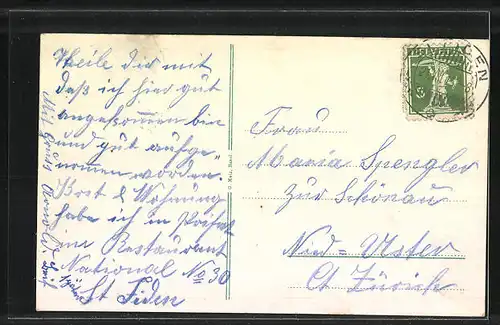 Theile dir mit
daß ich hier gut
angekommen bin
und gut aufge-
nommen worden.
Kost & Wohnung
habe ich in Privat
im Restaurant
National No 30
St Fiden
Mit Gruss Arnold
Frau
Maria Spengler
zur Schönau
Nied-Utster
Ct Zürich
HELVETIA
5